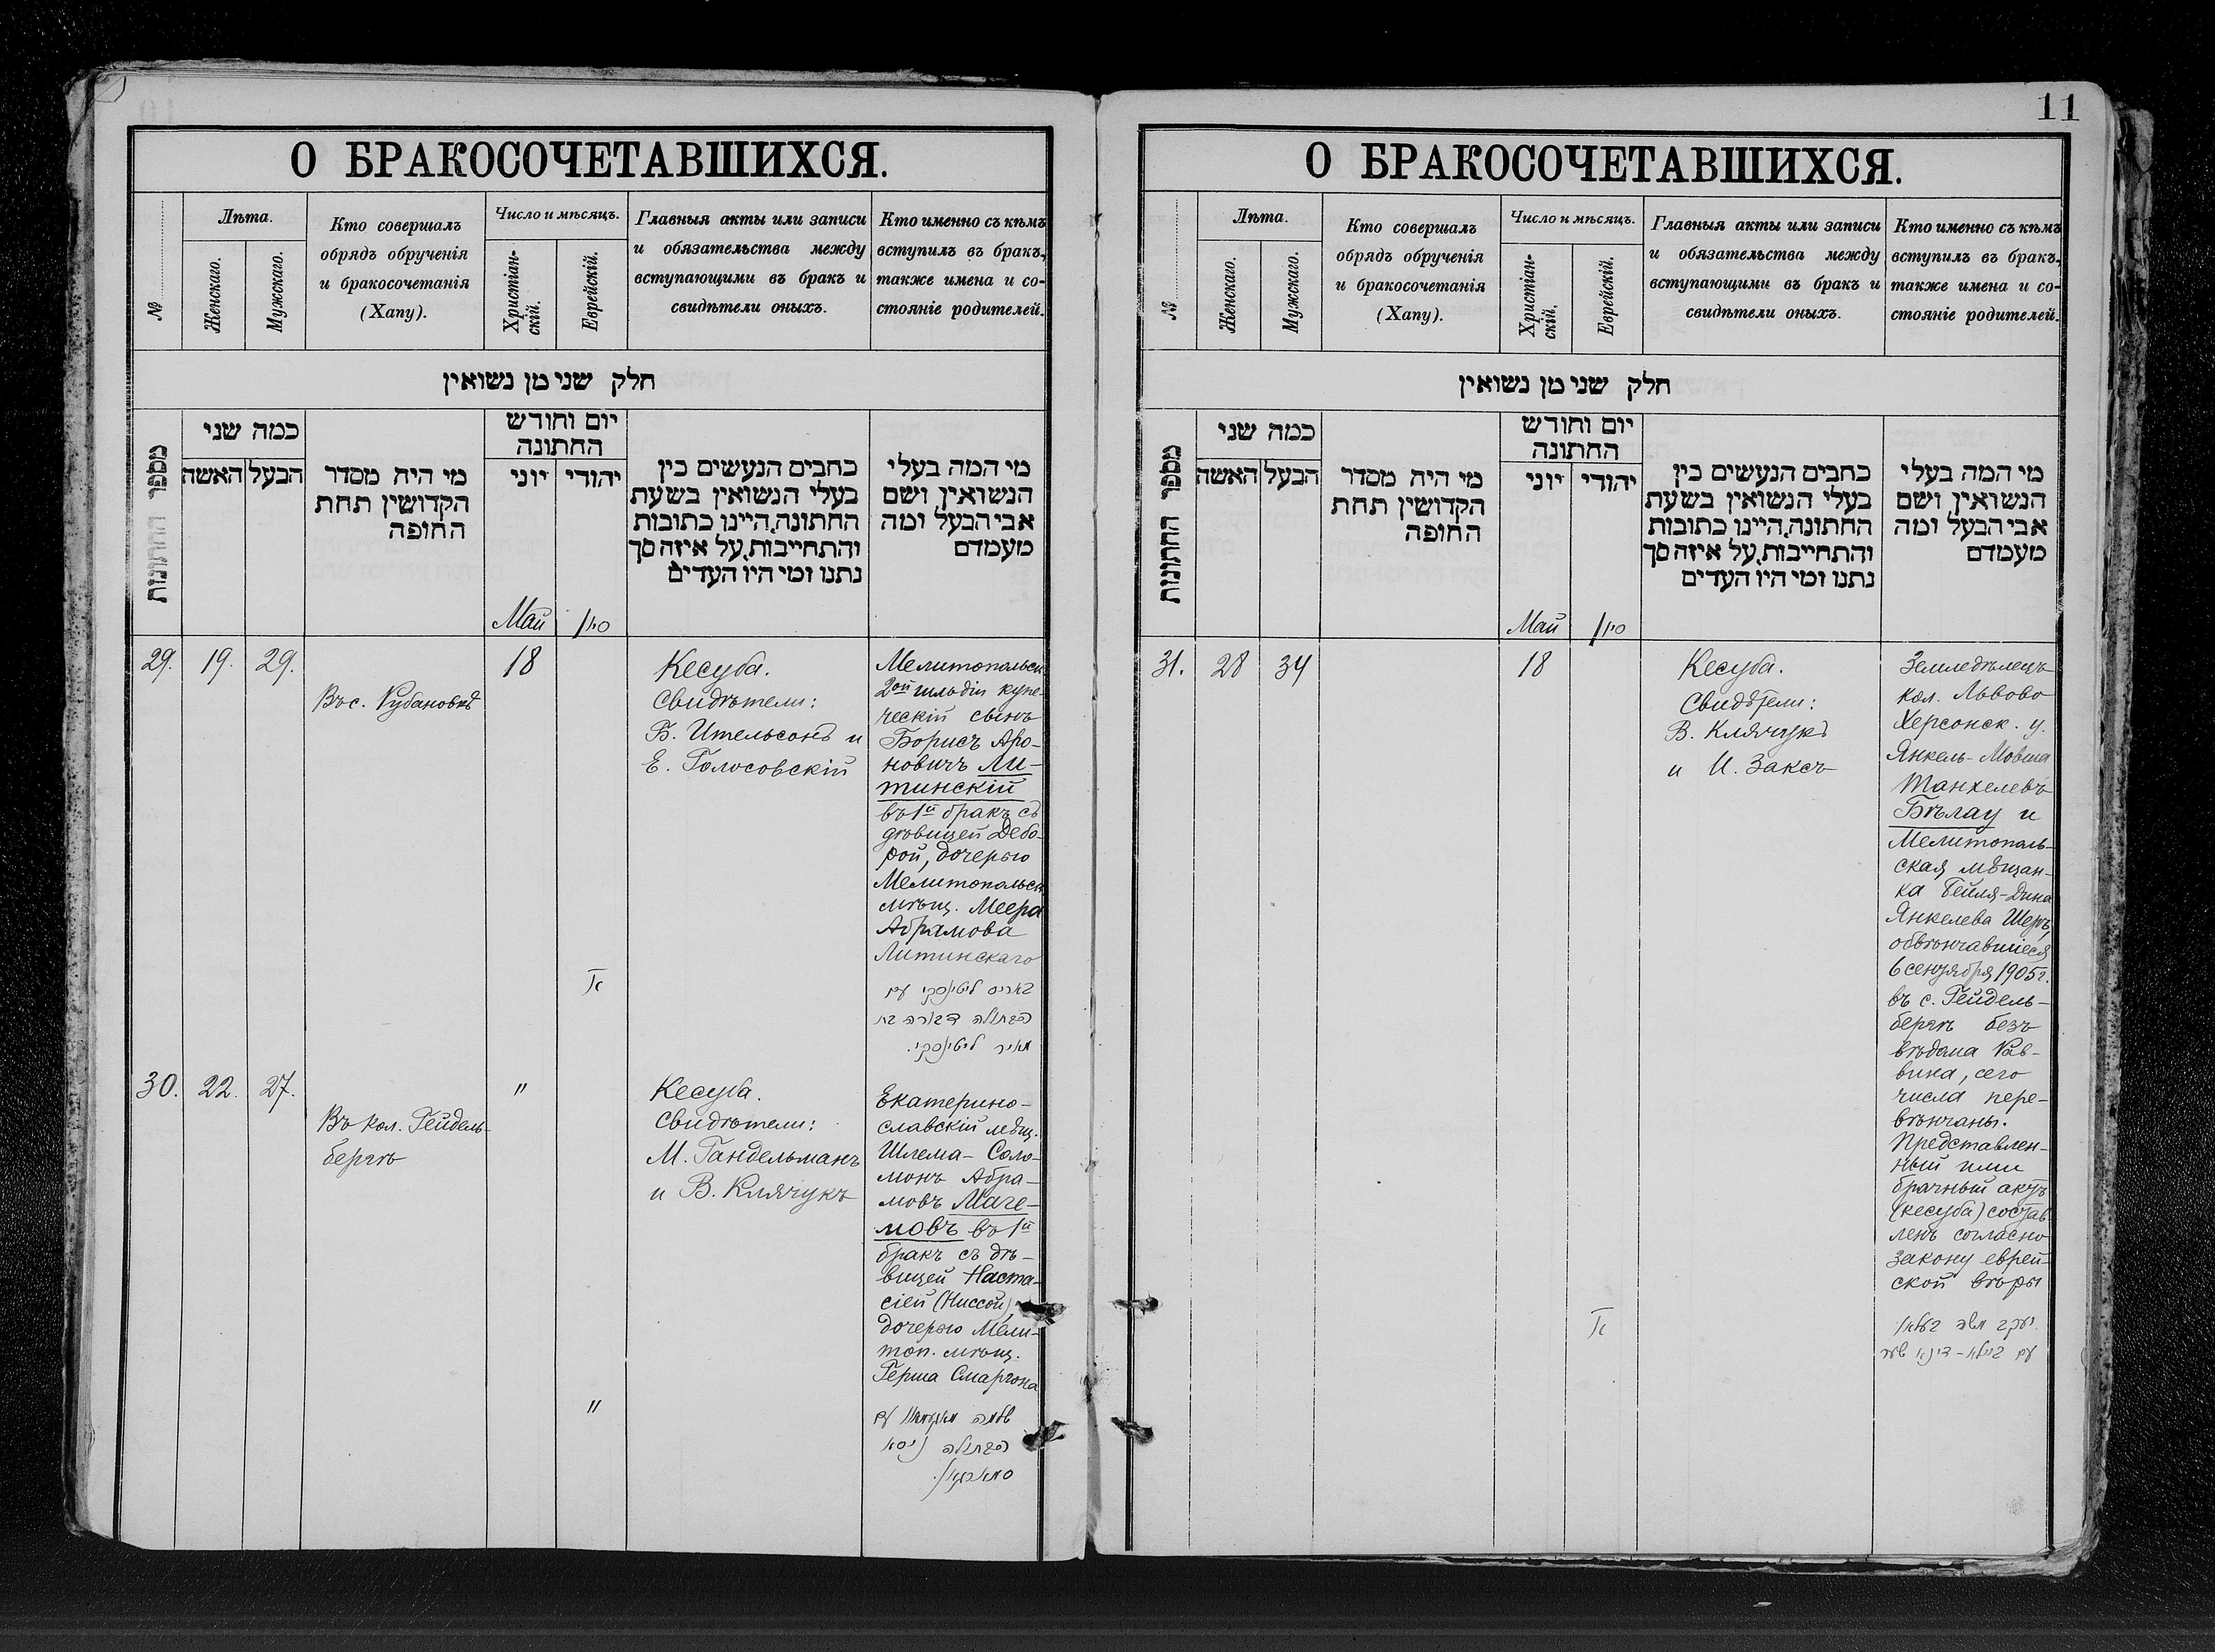 11
О БРАКОСОЧЕТАВШИХСЯ.
№
Лѣта.
Женскаго.
Мужскаго.
Кто совершалъ
обрядъ обрученія
и бракосочетанія
(Хапу).
Число и мѣсяцъ.
Христіан-
скій.
Еврейскій.
Главныя акты или записи
и обязательства между
вступающими въ бракъ и
свидѣтели оныхъ.
Кто именно съ кѣмъ
вступилъ въ бракъ,
также имена и со-
стояніе родителей.
חלק שני מן נשואין
מספר החתונות
כמה שני
האשה
הבעל
מי היה מסדר
הקדושין תחת
החופה
יום וחודש
החתונה
יוני
יהודי
כתבים הנעשים בין
בעלי הנשואין בשעת
החתונה,היינו כתובות
והתחייבות,על איזה סך
נתנו ומי היו העדים
מי המה בעלי
הנשואין ושם
אבי הבעל ומה
מעמדם
Май
סיון
29.
19.
29.
Въ с. Рубановкѣ
18
Кесуба.
Свидѣтели:
Б. Ительсонъ и
Е. Голосовскій
Мелитопольск.
2ой гильдіи купе-
ческій сынъ
Борисъ Аро-
новичъ Ли-
тинскій
въ 1й бракъ съ
дѣвицей Дебо-
рой, дочерью
Мелитопольск.
мѣщ. Меера
Абрамова
Литинскаго
באריס ליטינסקי עם
הבתולה דבורה בת
מאיר ליטינסקי.
30.
22.
27.
Въ кол. Гейдель-
бергъ
"
Кесуба.
Свидѣтели:
М. Гандельманъ
и В. Клячукъ
Екатерино-
славскій мѣщ.
Шлема-Соло-
монъ Абра-
мовъ Маге-
мовъ въ 1й
бракъ съ дѣ-
вицей Наста-
сіей (Ниссой),
дочерью Мели-
топ. мѣщ.
Герша Смаргона
"
שלמה עם
הבתולה ניסא
О БРАКОСОЧЕТАВШИХСЯ.
№
Лѣта.
Женскаго.
Мужскаго.
Кто совершалъ
обрядъ обрученія
и бракосочетанія
(Хапу).
Число и мѣсяцъ.
Христіан-
скій.
Еврейскій.
Главныя акты или записи
и обязательства между
вступающими въ бракъ и
свидѣтели оныхъ.
Кто именно съ кѣмъ
вступилъ въ бракъ,
также имена и со-
стояніе родителей.
חלק שני מן נשואין
מספר החתונות
כמה שני
האשה
הבעל
מי היה מסדר
הקדושין תחת
החופה
יום וחודש
החתונה
יוני
יהודי
כתבים הנעשים בין
בעלי הנשואין בשעת
החתונה,היינו כתובות
והתחייבות,על איזה סך
נתנו ומי היו העדים
מי המה בעלי
הנשואין ושם
אבי הבעל ומה
מעמדם
Май
סיון
31.
28
34
18
Кесуба.
Свидѣтели:
В. Клячукъ
и И. Заксъ
Земледѣлецъ
кол. Львово
Херсонск. у.
Янкель-Мовша
Танхелевъ
Бѣлау и
Мелитополь-
ская мѣщан-
ка Бейля-Дина
Янкелева Шеръ,
обвѣнчавшіеся
6 сентября 1905 г.
въ с. Гейдель-
бергъ безъ
вѣдома Рав-
вина, сего
числа пере-
вѣнчаны.
Представлен-
ный ими
брачный актъ
(кесуба) состав-
ленъ согласно
закону еврей-
ской вѣры
יעקב משה
עם ביילא-דינא שער